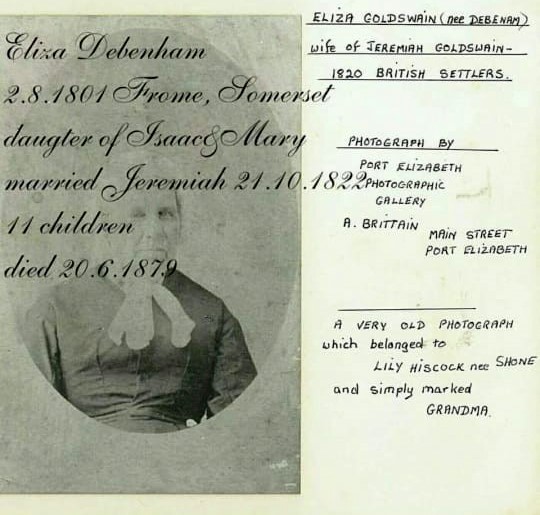 Eliza Debenham
2.8.1801 Frome, Somerset
daugter of Isaac&Mary
married Jeremiah 21.10.1822
11 children
died 20.6.1879
ELIZA GOLDSWAIN (nee DEBENAM)
wife of JEREMIAH GOLDSWAIN-
1820 BRITISH SETTLERS.
PHOTOGRAPH BY
PORT ELIZABETH
PHOTOGRAPHIC
GALLERY
A. BRITTAIN
MAIN STREET
PORT ELIZABETH
A VERY OLD PHOTOGRAPH
which belonged to
LILY HISCOCK nee SHONE
and simply marked
GRANDMA.